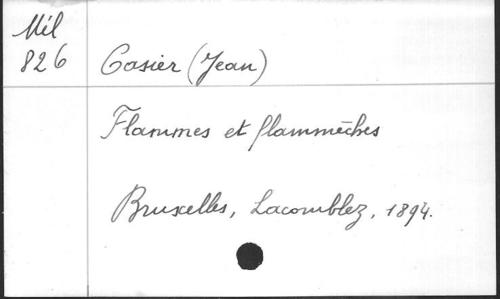 Mil
826
Casier (Jean)
Flammes et flammèches
Bruxelles, Lacomblez, 1894.